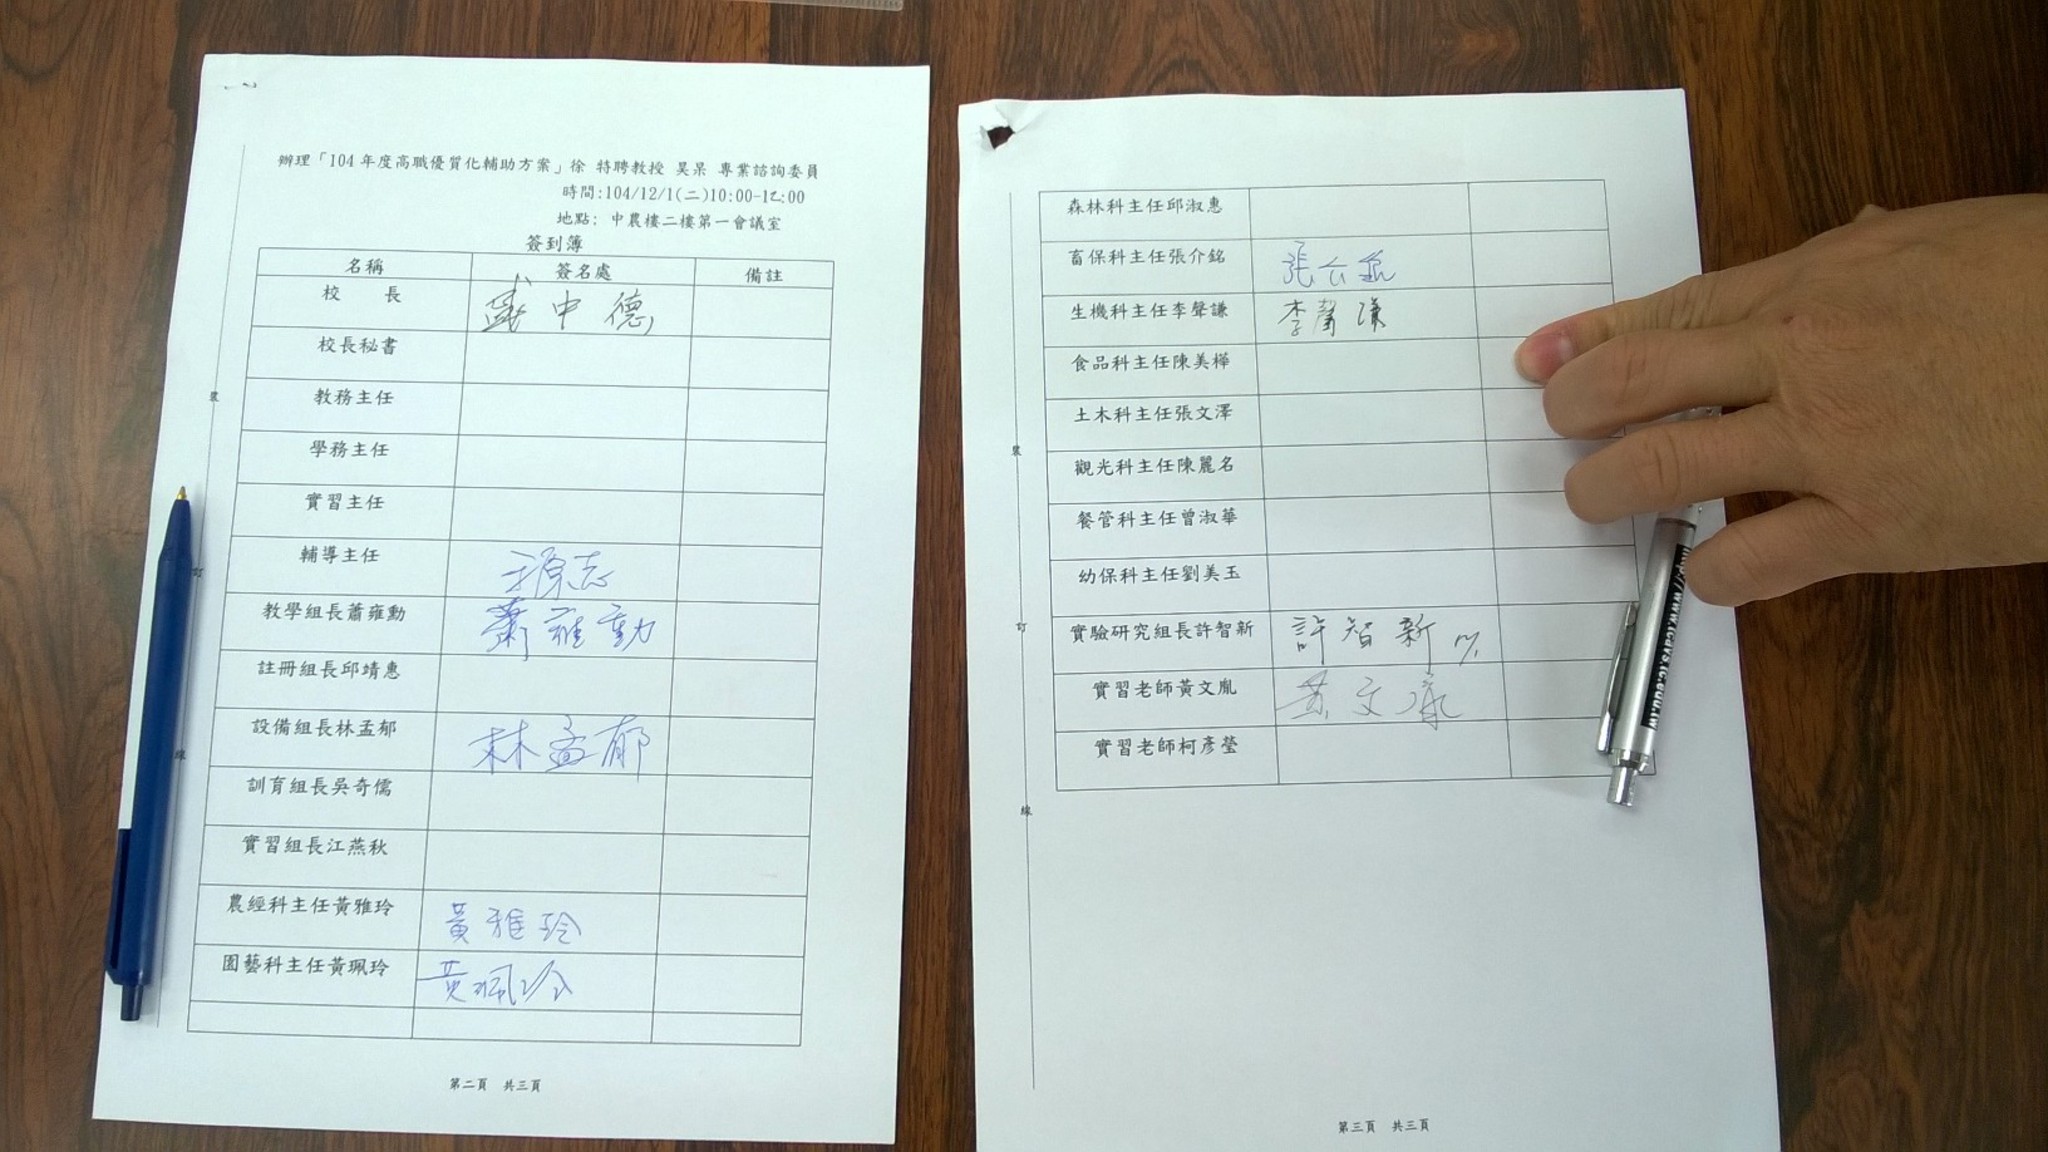 辦理「104年度高職優質化輔助方案」徐 特聘教授 昊杲 專業諮詢委員
時間:104/12/1(二)10:00-12:00
地點: 中農樓二樓第一會議室
簽到簿
名稱 簽名處 備註
校 長 中德
校長秘書
教務主任
學務主任
實習主任
輔導主任
教學組長蕭雍勳 蕭雍勳
註冊組長邱靖惠
設備組長林孟郁 林孟郁
訓育組長吳奇儒
實習組長江燕秋
農經科主任黃雅玲 黃雅玲
園藝科主任黃珮玲 黃珮玲
第二頁 共三頁
裝
訂
線
森林科主任邱淑惠
畜保科主任張介銘 張介銘
生機科主任李聲謙 李聲謙
食品科主任陳美樺
土木科主任張文澤
觀光科主任陳麗名
餐管科主任曾淑華
幼保科主任劉美玉
實驗研究組長許智新 許智新
實習老師黃文胤 黃文胤
實習老師柯彥瑩
第三頁 共三頁
裝
訂
線
http://www.tcavs.tc.edu.tw